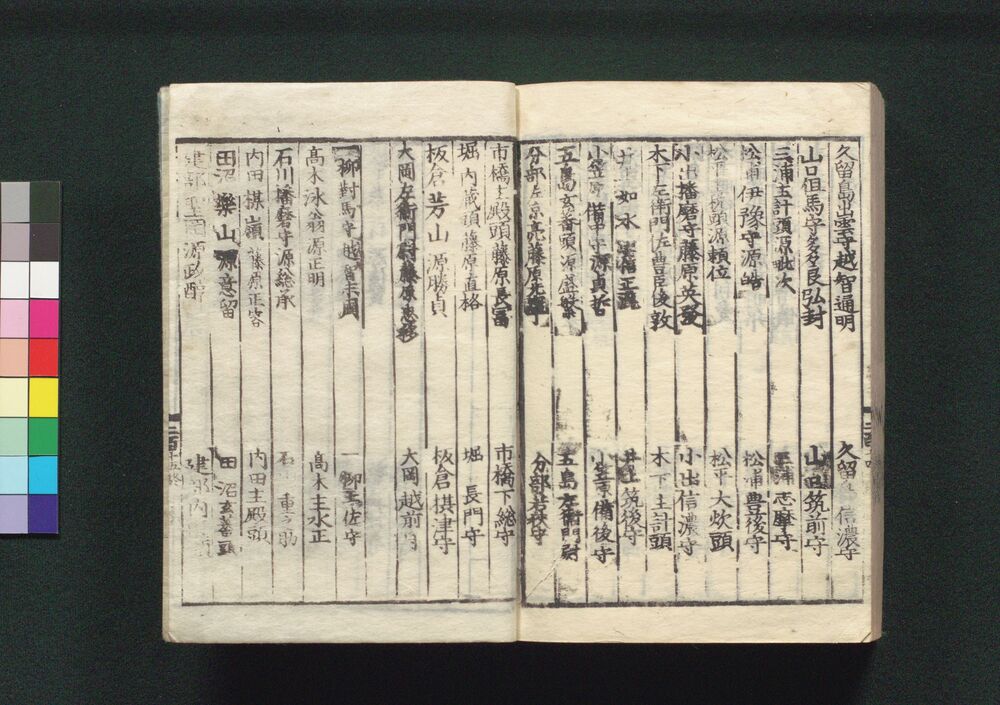 久留島出雲守越智通明 久留 信濃守
山口但馬守多々良弘封 山口筑前守
三浦五計頭源毗次 三浦志摩守
松浦伊豫守源皓 松浦豊後守
松平 頭源頼位 松平大炊頭
小出播磨守藤原英發 小出信濃守
木下左衛門佐豊臣俊敦 木下主計頭
井上如水 源信正 井上筑後守
小笠原備中守源貞哲 小笠原備後守
五島玄蕃頭源盛繁 五島左衛門尉
分部左京亮藤原光寧 分部若狭守
市橋主殿頭藤原長富 市橋下総守
堀内蔵頭藤原直格 堀長門守
板倉芳山源勝貞 板倉摂津守
大岡左衛門尉藤原忠移 大岡越前守
柳對馬守越智 一柳土佐守
高木泳翁源正明 高木主水正
石川播磨守源総承 石川重之助
内田棋嶺藤原正容 内田主殿頭
田沼樂山源意留 田沼玄蕃頭
建部 源政醇 建部内